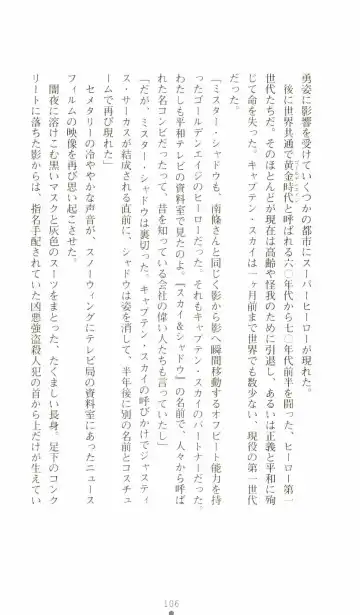 勇姿に影響を受けていくつかの都市にスーパーヒーローが現れた。
後に世界共通で黄金時代と呼ばれる六〇年代から七〇年代前半を闘った、ヒーロー第一
世代たちだ。そのほとんどが現在は高齢や怪我のために引退し、あるいは正義と平和に殉
じて命を失った。キャプテン・スカイは一ヶ月前まで世界でも数少ない、現役の第一世代
だった。
「ミスター・シャドウも、南條さんと同じく影から影へ瞬間移動するオフビート能力を持
ったゴールデンエイジのヒーローだった。それもキャプテン・スカイのパートナーだった。
わたしも平和テレビの資料室で見たのよ。『スカイ&シャドウ』の名前で、人々から呼ば
れた名コンビだったって、昔を知っている会社の偉い人たちも言っていたし」
「だが、ミスター・シャドウは裏切った。キャプテン・スカイの呼びかけでジャスティ
ス・サーカスが結成される直前に、シャドウは姿を消して、半年後に別の名前とコスチュ
ームで再び現れた」
セメタリーの冷ややかな声音が、スノーウィングにテレビ局の資料室にあったニュース
フィルムの映像を再び思い起こさせた。
闇夜に溶けこむ黒いマスクと灰色のスーツをまとった、たくましい長身。足下のコンク
リートに落ちた影からは、指名手配されていた凶悪強盗殺人犯の首から上だけが生えてい
106